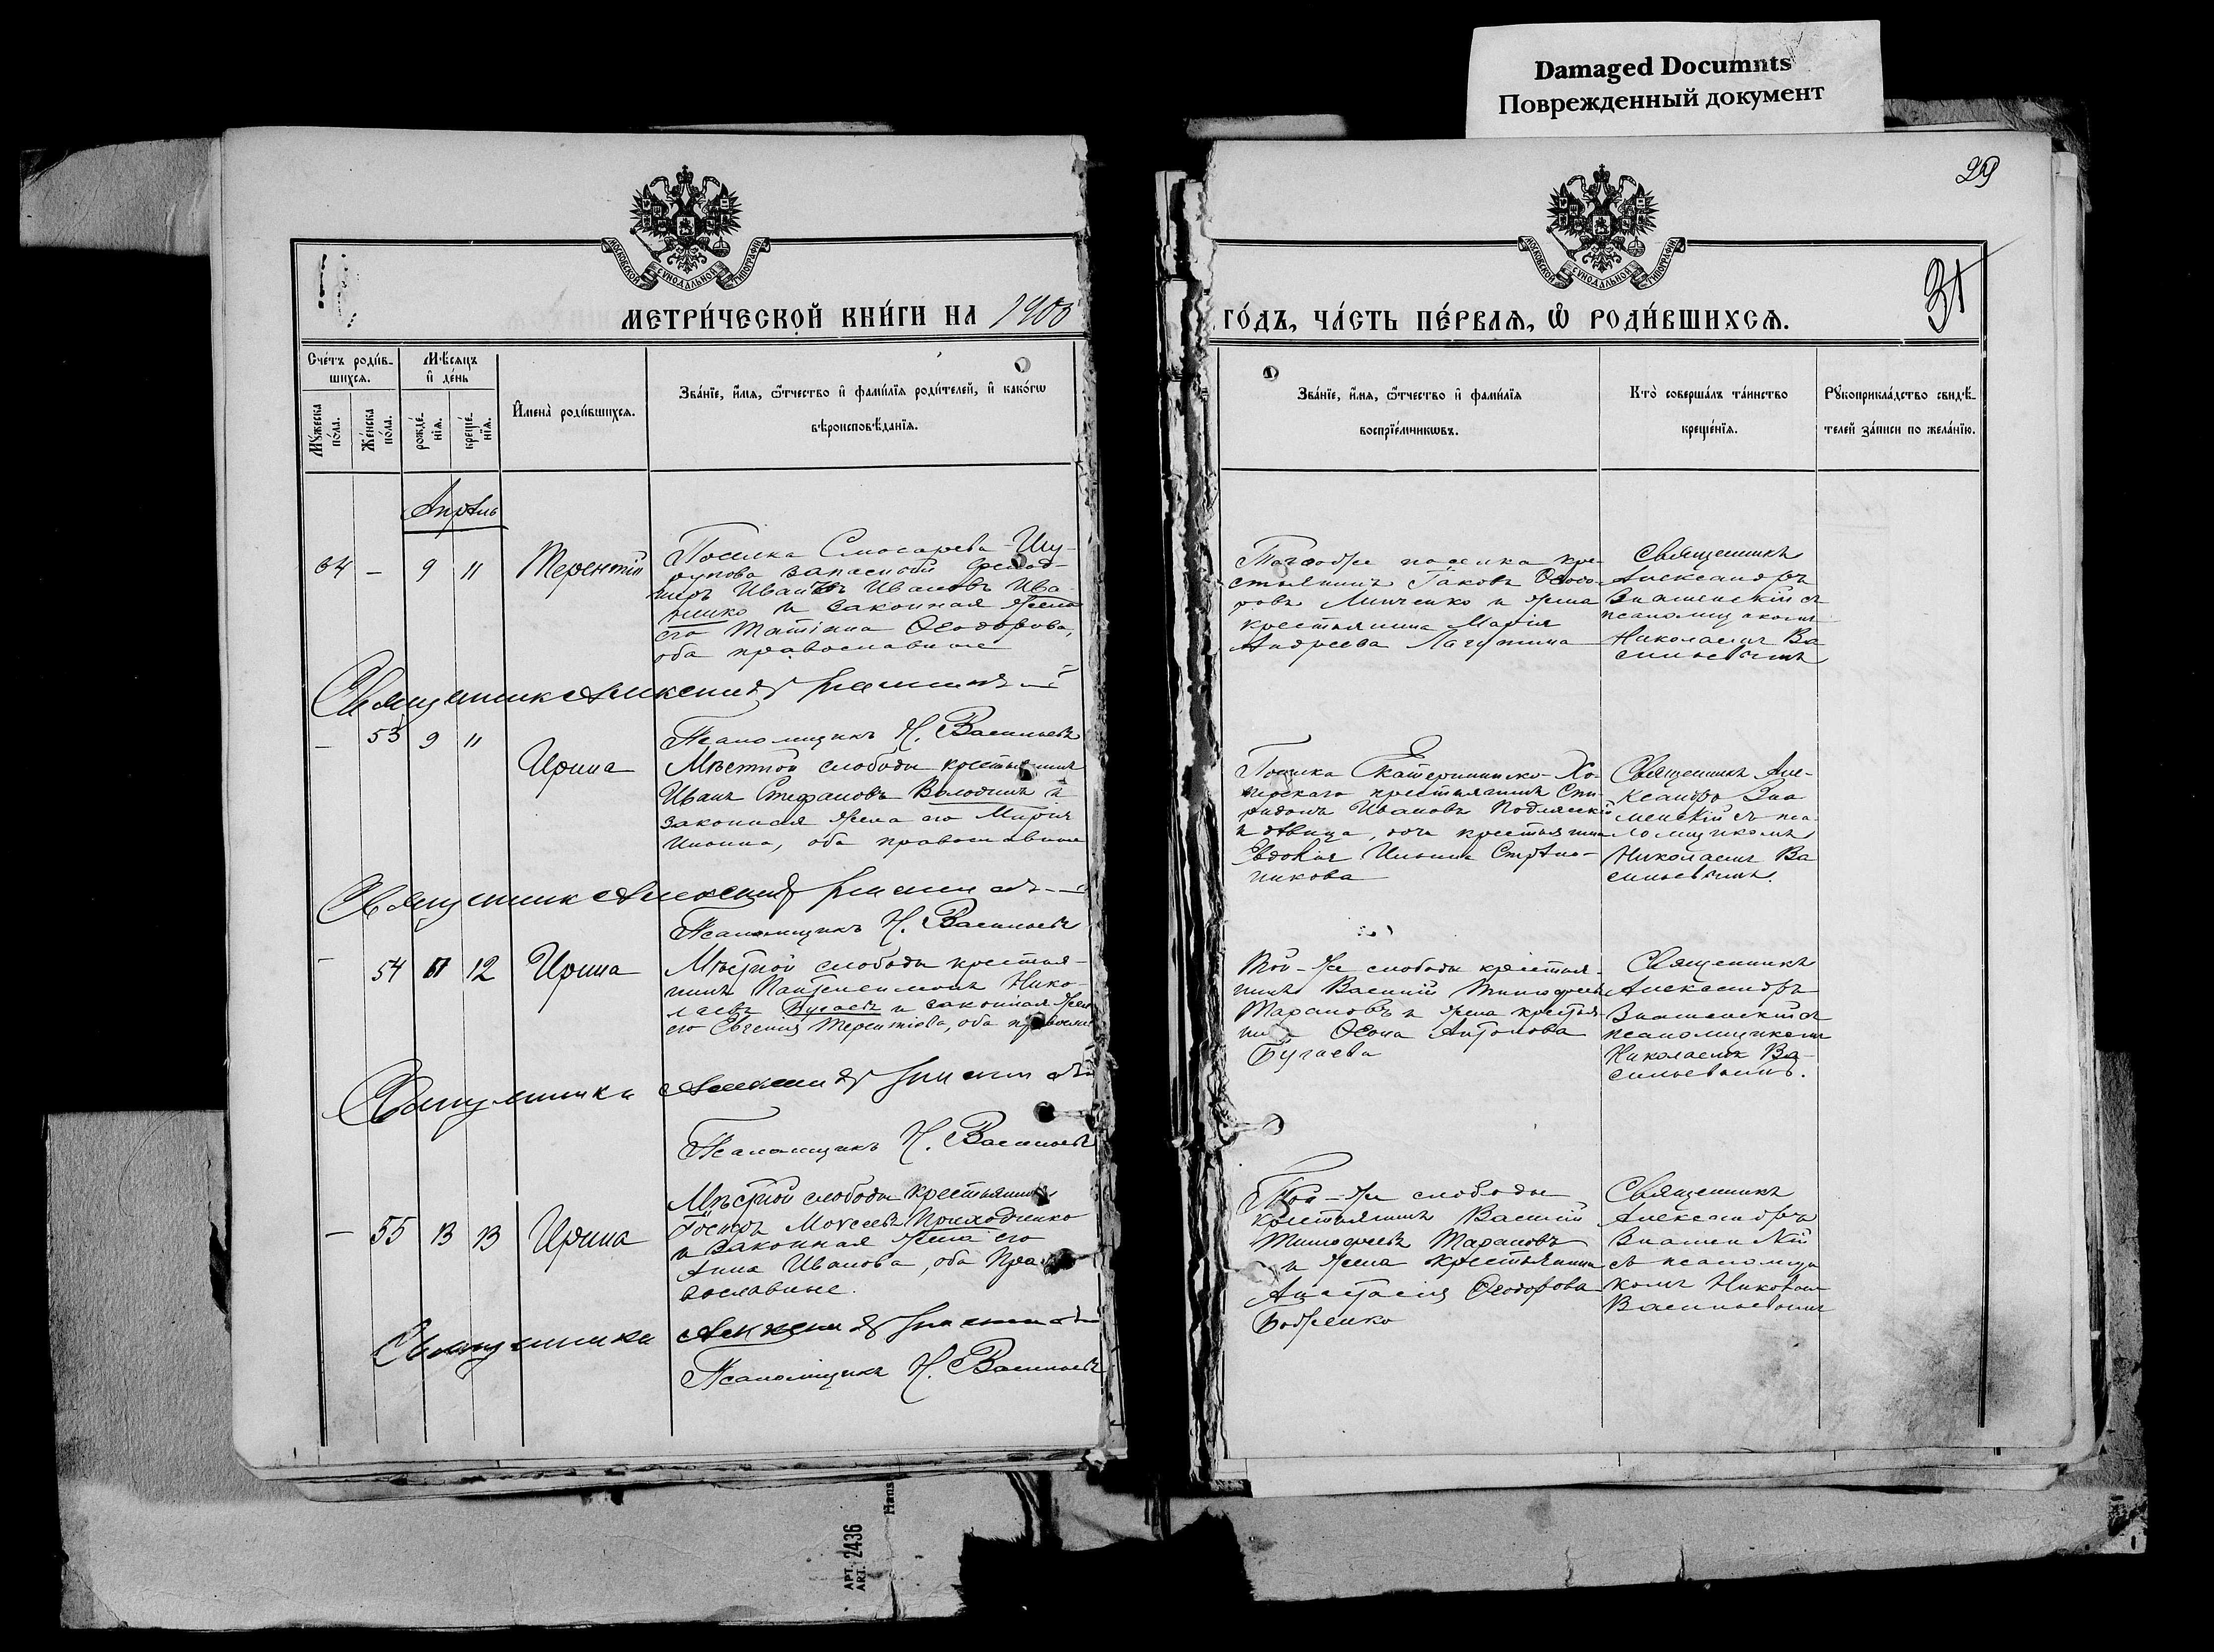 Damaged Documnts
Поврежденный документ
29
31
МОСКОВСКОЙ СУНОДАЛЬНОЙ ТИПОГРАФИИ
МОСКОВСКОЙ СУНОДАЛЬНОЙ ТИПОГРАФИИ
МЕТРИ́ЧЕСКОЙ КНИ́ГИ НА 1900
ГО́ДЪ, ЧА́СТЬ ПЕ́РВАѦ, Ѡ РОДИ́ВШИХСѦ.
Сче́тъ роди́в-
шихсѧ.
Мѣ́сѧцъ
и де́нь
Мꙋ́жеска по́ла.
Же́нска по́ла.
рожде́-нїѧ.
креще́-нїѧ.
Имена̀ роди́вшихсѧ.
Зва́нїе, и́мѧ, ѻ́тчество и фами́лїѧ роди́телей, и како́гѡ
вѣроисповѣ́данїѧ.
Зва́нїе, и́мѧ, ѻ́тчество и фами́лїѧ
воспрїе́мникѡвъ.
Кто̀ соверша́лъ та́инство
креще́нїѧ.
Рꙋкоприкла́дство свидѣ́-
телей за́писи по жела́нїю.
Апрѣль
64 — 9 11 Терентій
Поселка Слюсарева-Шу-
рупова запасный фельд-
Иванъ Ивановъ Ива-
и законная жена
его Татіана Ѳеодорова,
оба православные
Того же поселка кре-
стьянинъ Іаковъ Ѳеодо-
ровъ Минченко и жена
крестьянина Марія
Андреева Лагутина
Священникъ
Александръ
Знаменскій съ
псаломщикомъ
Николаемъ Ва
сильевымъ
Священник Александр Знаменскій
Псаломщикъ Н. Васильевъ
— 53 9 11 Ирина
Мѣстной слободы крестьянинъ
Иванъ Стефановъ Володинъ и
законная жена его Марія
Ильина, оба православные
Поселка Екатерининско-Хо-
перскаго крестьянинъ Спи-
ридонъ Ивановъ
и дѣвица, дочь крестьянина
Евдокія Ильина Стрѣль-
никова
Священникъ Але-
ксандръ Зна
менскій съ пса
ломщикомъ
Николаемъ Ва
сильевымъ.
Священник Александр Знаменскій
Псаломщикъ Н. Васильевъ
— 54 12 Ирина
Мѣстной слободы крестья-
нинъ Пантелеимонъ Нико-
лаевъ Бугаевъ и законная жена
его Евгенія Терентіева, оба правосл.
Той-же слободы крестья-
нинъ Василій Тимофеевъ
Тарановъ и жена крестья-
Ѳеона Антонова
Бугаева
Священникъ
Александръ
Знаменскій съ
псаломщикомъ
Николаемъ Ва-
сильевымъ.
Священникъ Александр Знаменскій
Псаломщикъ Н. Васильевъ
— 55 13 13 Ирина
Мѣстной слободы крестьянинъ
Іосифъ Моѵсеевъ Приходченко
и законная жена его
Анна Иванова, оба пра-
вославные.
Той-же слободы
крестьянинъ Василій
Тимофеевъ Тарановъ
и жена крестьянина
Анастасія Ѳеодорова
Боженко
Священникъ
Александръ
Знаменскій
съ псаломщи
комъ Николаемъ
Васильевымъ
Священникъ Александр Знаменскій
Псаломщикъ Н. Васильевъ
АРТ. 2436
ART.
Haus